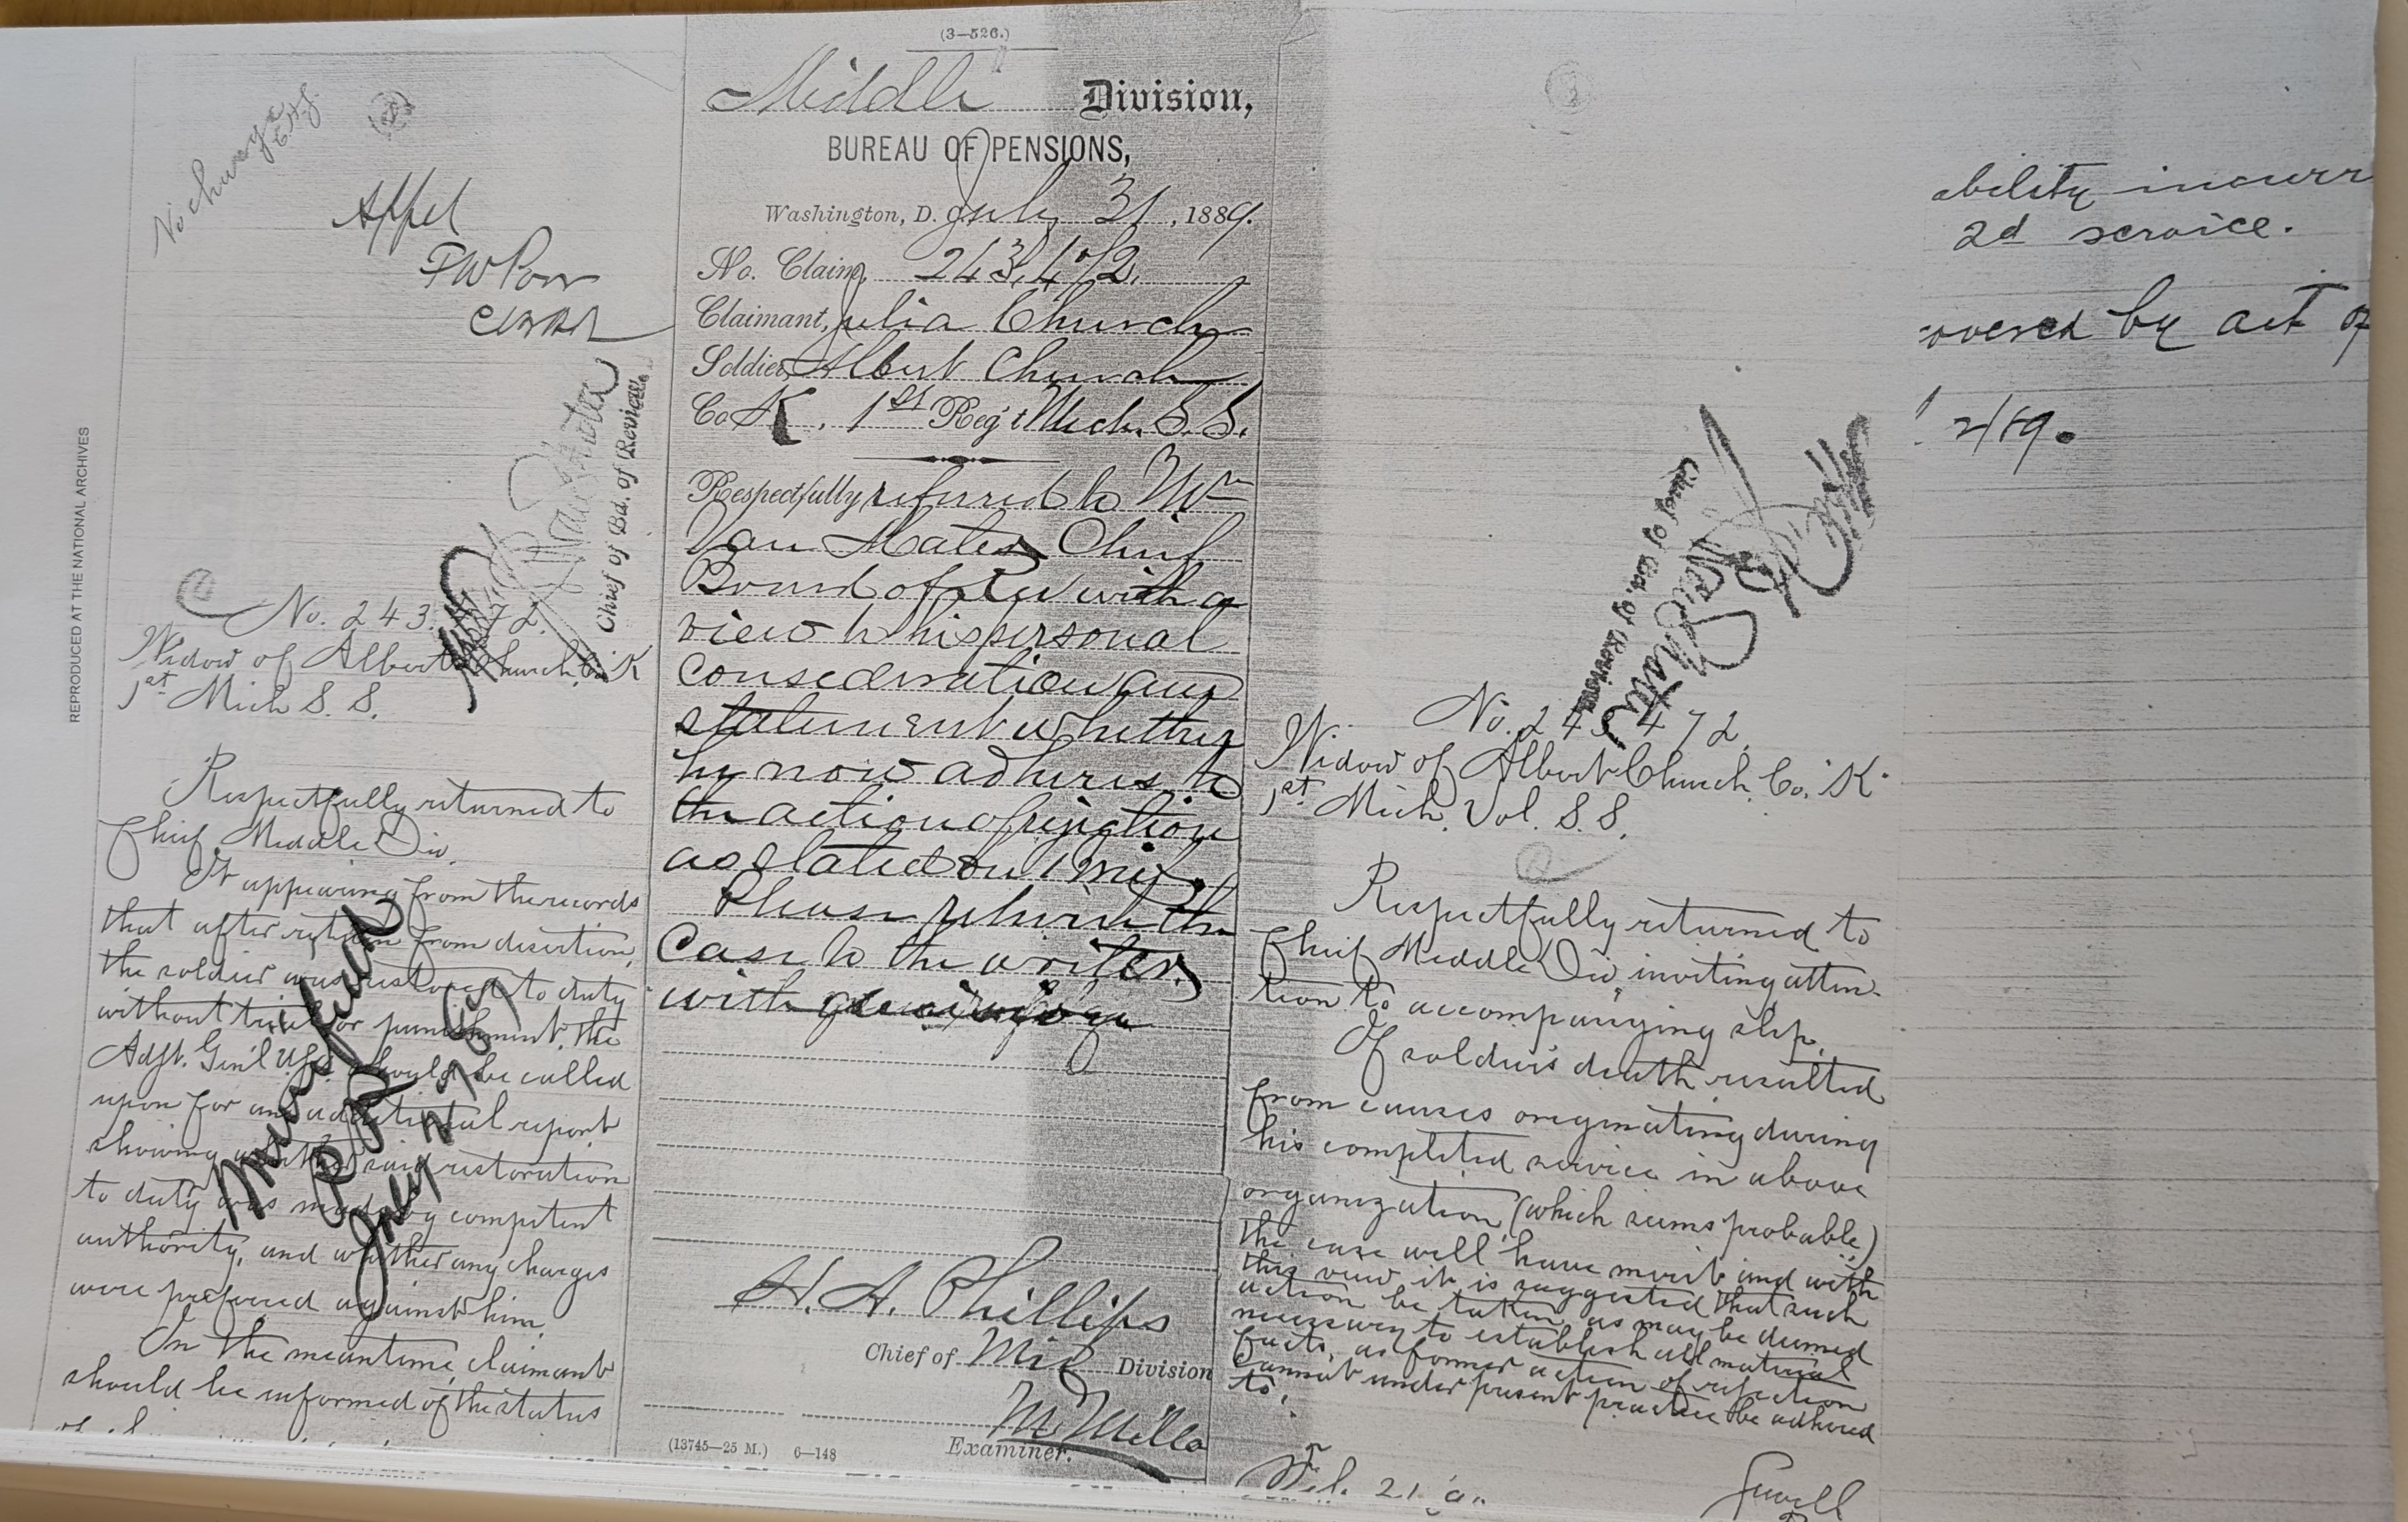 REPRODUCED AT THE NATIONAL ARCHIVES
No change
Appel
No. 243.472.
Widow of Albert Church, Co. K
1st Mich S. S.
Chief of Bd. of Review.
Respectfully returned to
Chief Middle Div.
It appearing from the records
that after return from desertion,
the soldier was restored to duty
without trial or punishment, the
Adjt. Gen'l U.S.A. should be called
upon for an additional report
showing whether said restoration
to duty was made by competent
authority, and whether any charges
were prefered against him.
In the meantime, claimant
should be informed of the status
July 27/89
(3—526.)
Middle Division,
BUREAU OF PENSIONS,
Washington, D. C. July 31, 1889.
No. Claim, 243,472,
Claimant, Julia Church
Soldier, Albert Church
Co K, 1st Reg't Mich. S. S.
Respectfully referred to Mr
Van Mater Chief
Board of Rev with a
view to his personal
consideration and
statement whether
he now adheres to
the action of rejection
as stated on
Please return the
case to the writer
with
H. A. Phillips
Chief of Mid Division
M. Mills
Examiner.
(13745—25 M.) 6—148
Chief of Bd. of Review
No. 243 472,
Widow of Albert Church, Co. K
1st Mich. Vol. S. S.
Respectfully returned to
Chief Middle Div, inviting atten-
tion to accompanying slip.
If soldier's death resulted
from causes originating during
his completed service in above
organization (which seems probable)
the case will have merit and with
this view it is suggested that such
action be taken as may be deemed
necessary to establish all material
facts, as former action of rejection
cannot under present practice be adhered
to.
Feb. 21
ability incurr
2d service.
overed by act of
2/89.